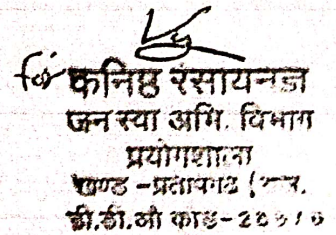 for कनिष्ठ रसायनज्ञ
जन स्वा अभि. विभाग
प्रयोगशाला
खण्ड - प्रतापगढ (राज.
डी.डी.ओ कोड-